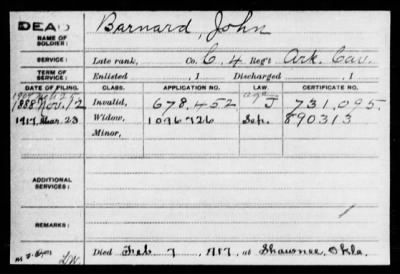 DEAD Barnard, John
NAME OF SOLDIER:
SERVICE: Late rank, Co. C, 4 Reg't Ark. Cav.
TERM OF SERVICE: Enlisted , 1 Discharged , 1
DATE OF FILING. CLASS. APPLICATION NO. LAW. CERTIFICATE NO.
1888 Nov. 12 Invalid, 678.452 J 731.095.
1917. Mar. 23 Widow, 1096726 Sep. 890313
Minor,
ADDITIONAL SERVICES:
REMARKS:
Died Feb 7, 1917, at Shawnee, Okla.